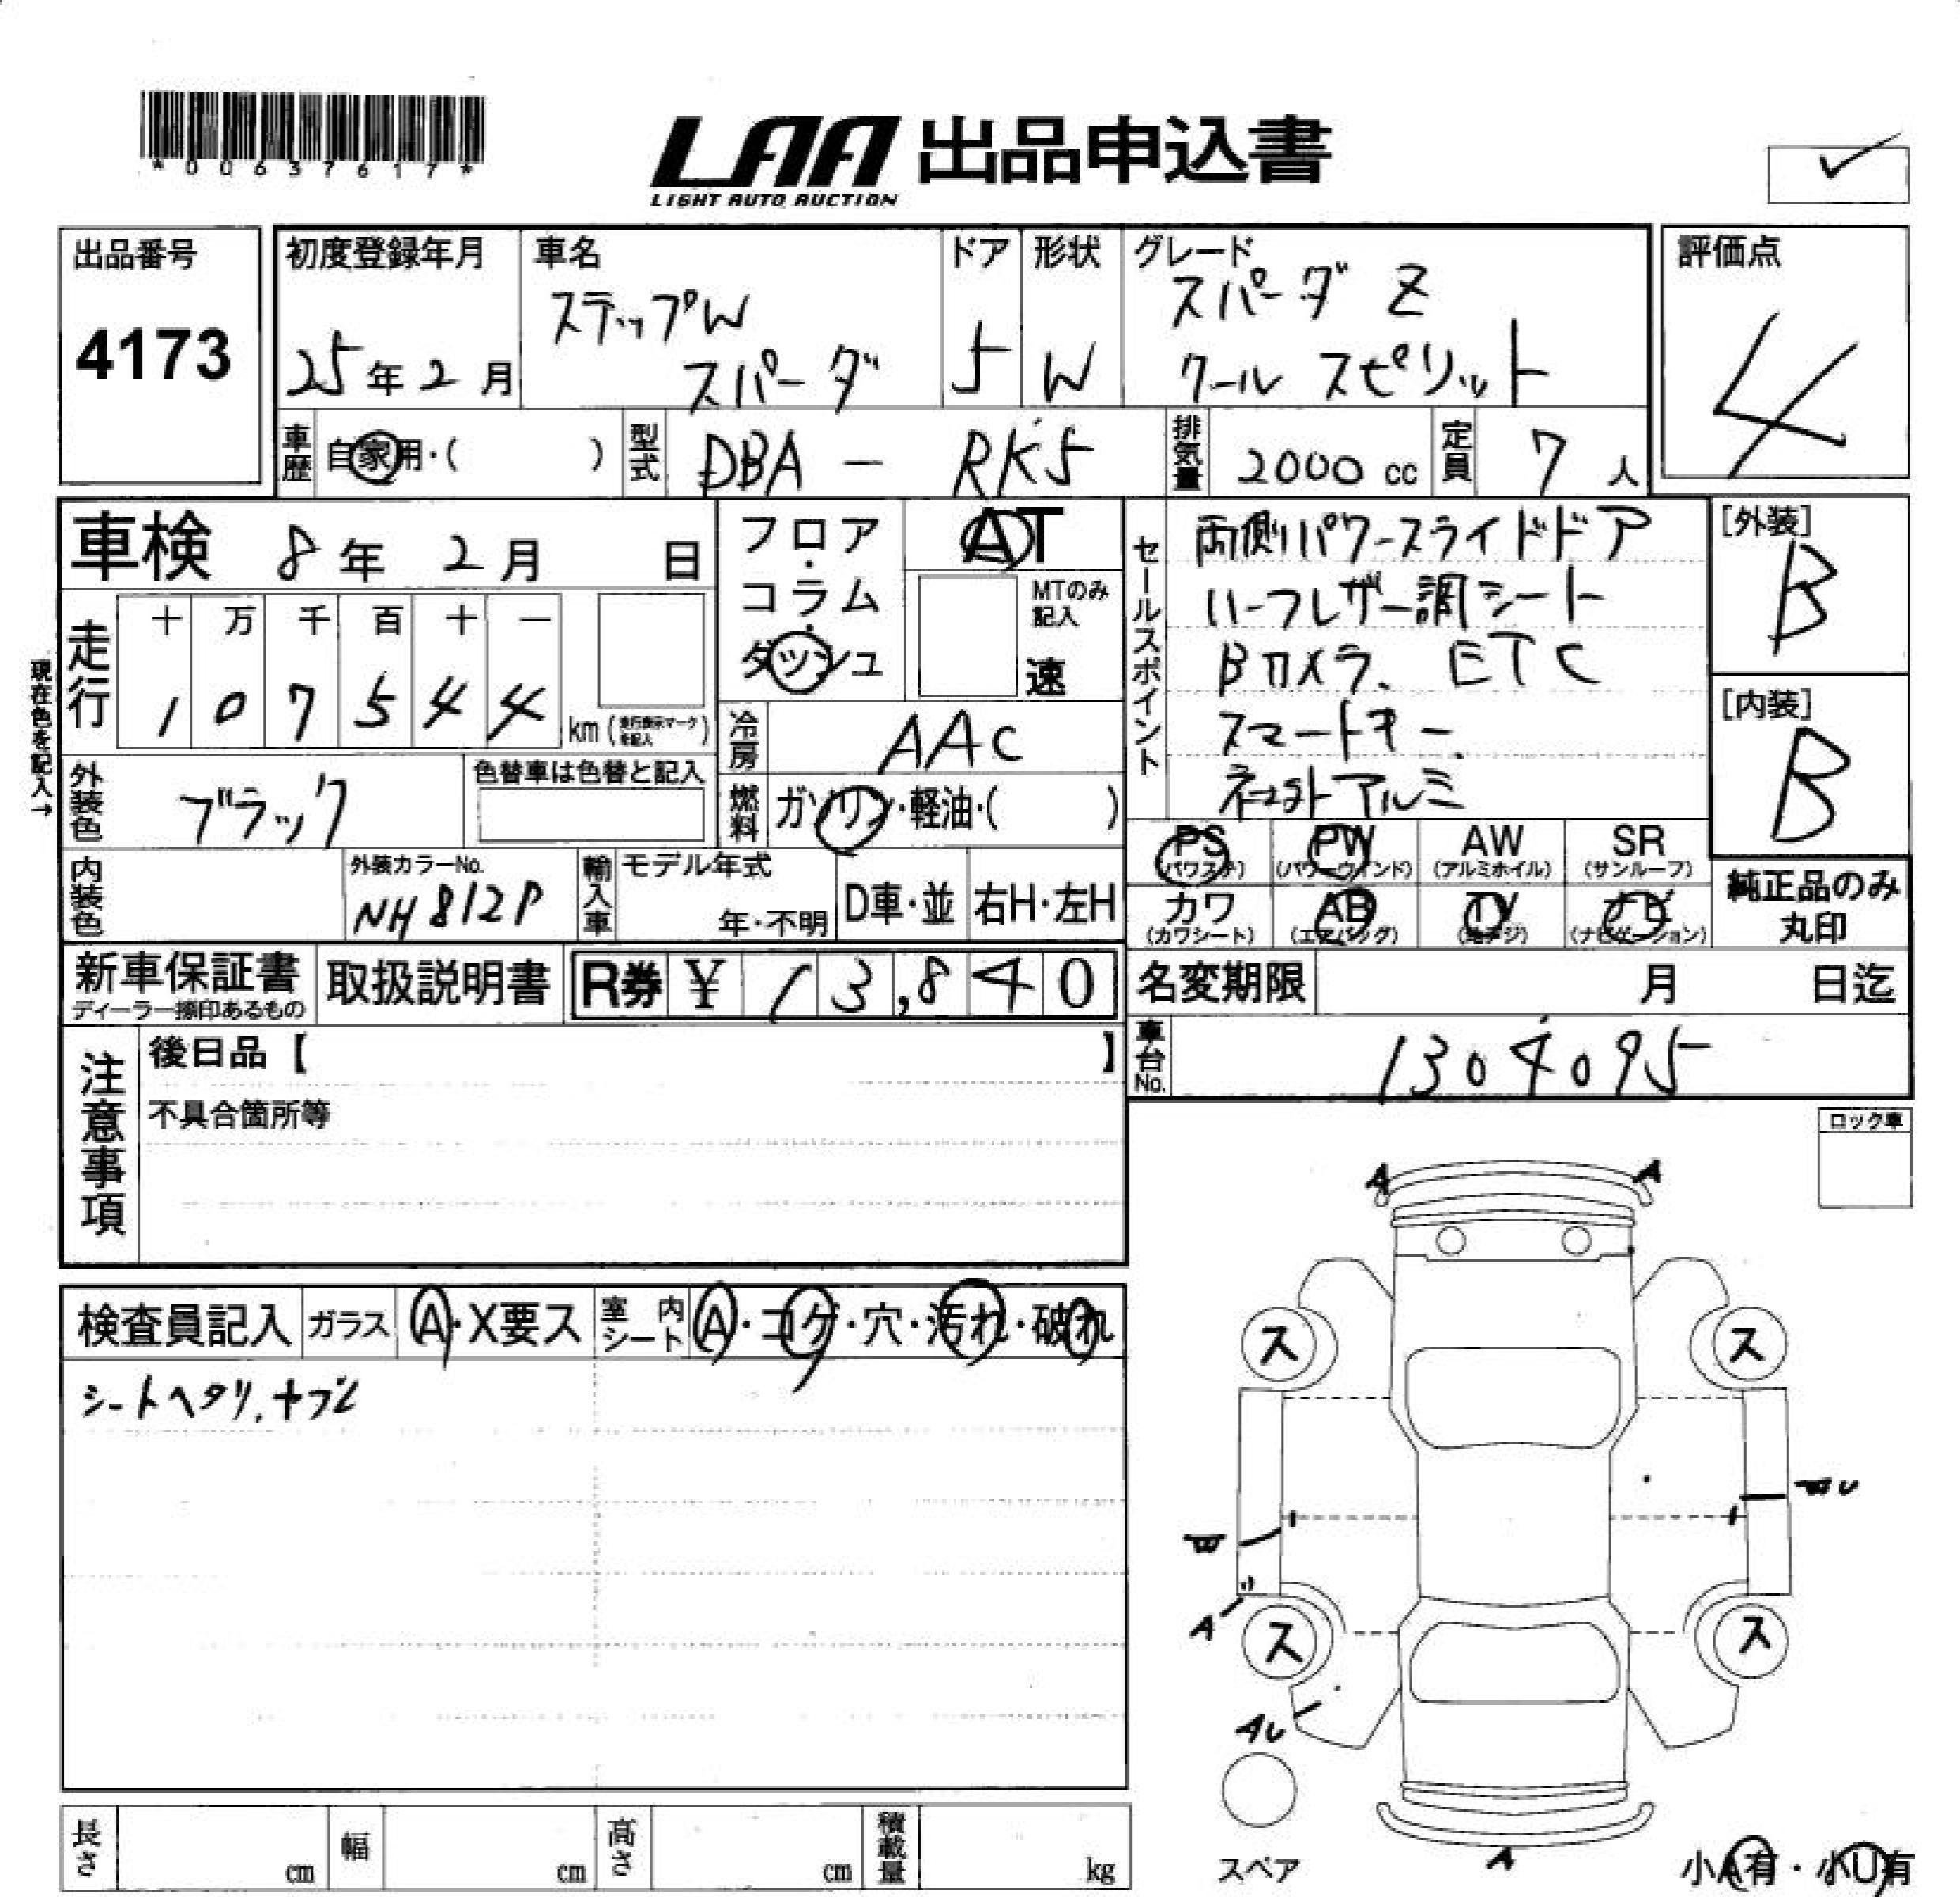 *00637617*
LAA 出品申込書
LIGHT AUTO AUCTION
出品番号
4173
初度登録年月
25年2月
車名
ステップW
スパーダ
ドア
5
形状
W
グレード
スパーダ Z
クール スピリット
評価点
4
車歴
自家用・( )
型式
DBA - RK5
排気量
2000 cc
定員
7人
現在色を記入→
車検 8年 2月 日
走行
十 万 千 百 十 一
1 0 7 5 4 4
km (走行表示マークを記入)
外装色
ブラック
色替車は色替と記入
内装色
外装カラーNo.
NH812P
フロア・
コラム・
ダッシュ
AT
MTのみ記入
速
冷房
AAC
燃料
ガソリン・軽油・( )
輸入車
モデル年式
年・不明
D車・並
右H・左H
セールスポイント
両側パワースライドドア
ハーフレザー調シート
Bカメラ. ETC
スマートキー.
社外アルミ
[外装]
B
[内装]
B
PS (パワステ)
PW (パワーウィンド)
AW (アルミホイル)
SR (サンルーフ)
カワ (カワシート)
AB (エアバッグ)
TV (地デジ)
ナビ (ナビゲーション)
純正品のみ
丸印
新車保証書
ディーラー捺印あるもの
取扱説明書
R券 ¥ 13,840
名変期限 月 日迄
車台No.
1304095
注意事項
後日品【 】
不具合箇所等
ロック車
検査員記入
ガラス
A・X要ス
室内シート
A・コゲ・穴・汚れ・破れ
シートヘタリ.
A A
ス ス
W
WU
A
ス ス
AU
A
スペア
小A有・小U有
長さ cm
幅 cm
高さ cm
積載量 kg